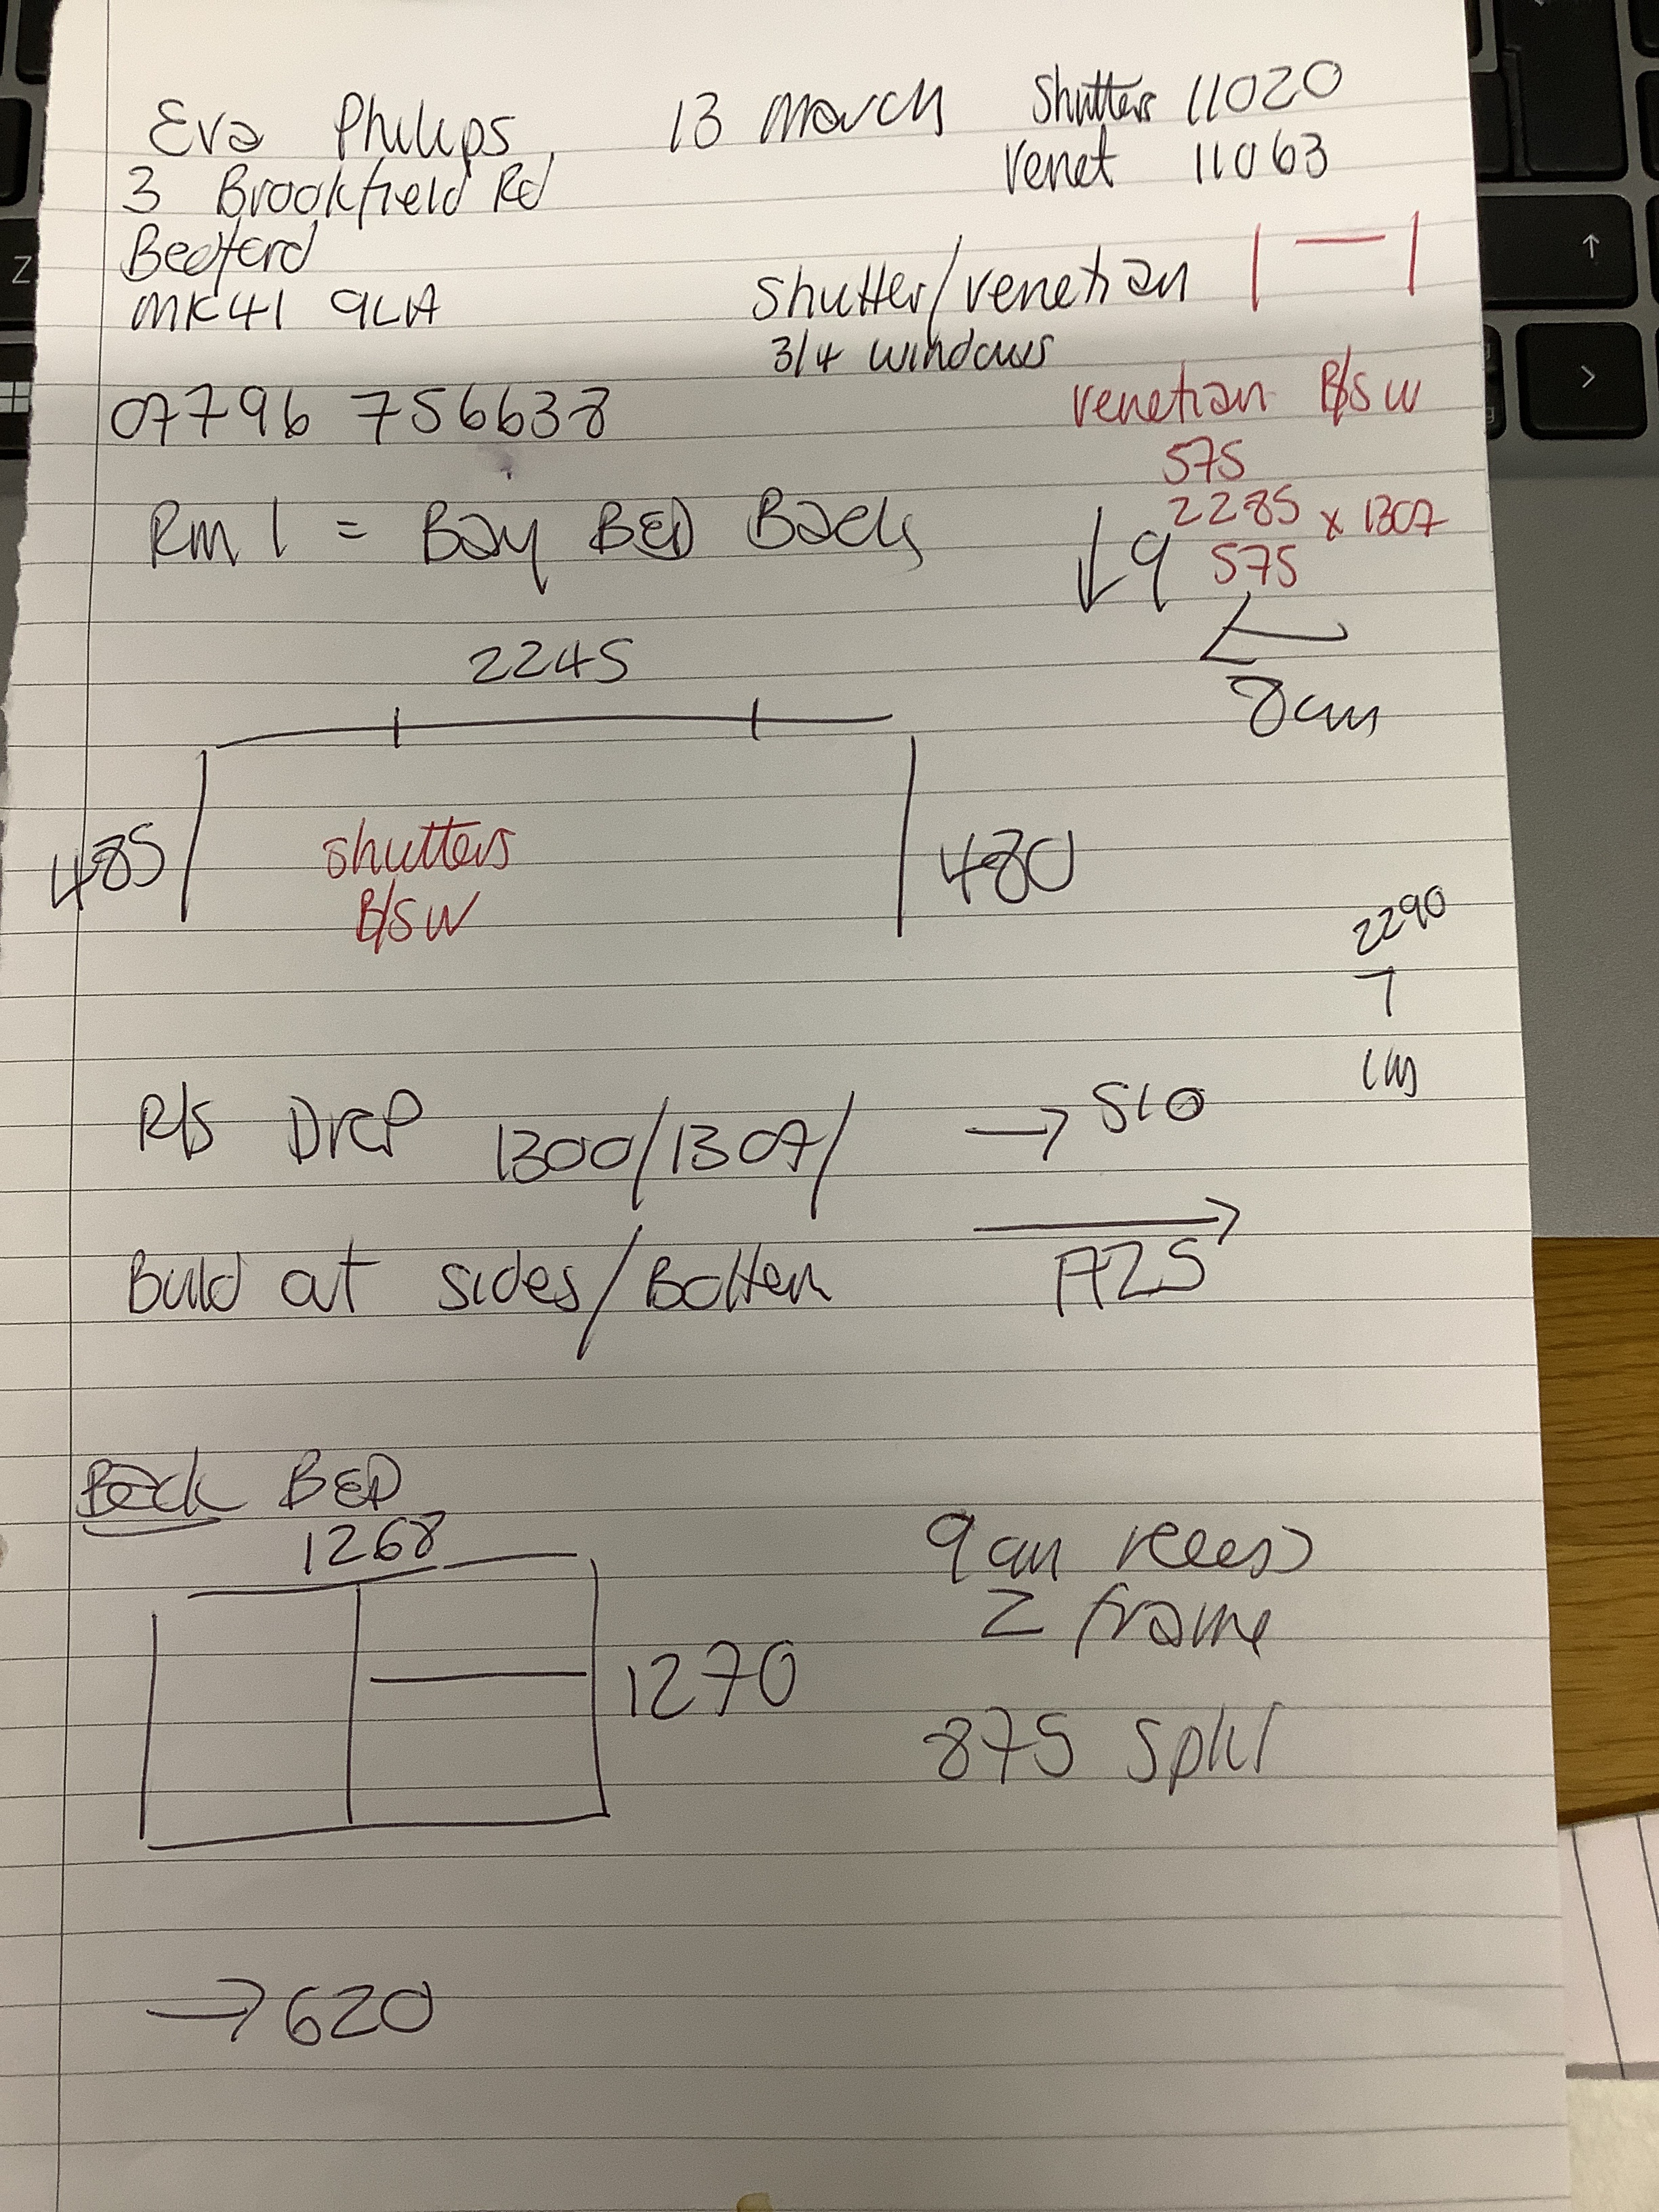 Eva Philips, 13 March Shutters 11020
3 Brookfield Rd Venet 11063
Bedford
MK41 9LA Shutter/venetian
3/4 windows
07796 756638 venetian B/S W
575
Rm 1 = Bay BED Back 2285 x 1307
9 575
2245 8cm
485 shutters 480
B/S W
2290
7
R/S Drop 1300/1307/ → 510
Build at sides/Bottom A25
Back BED
1268 9cm recess
Z frame
1270
875 split
→ 620